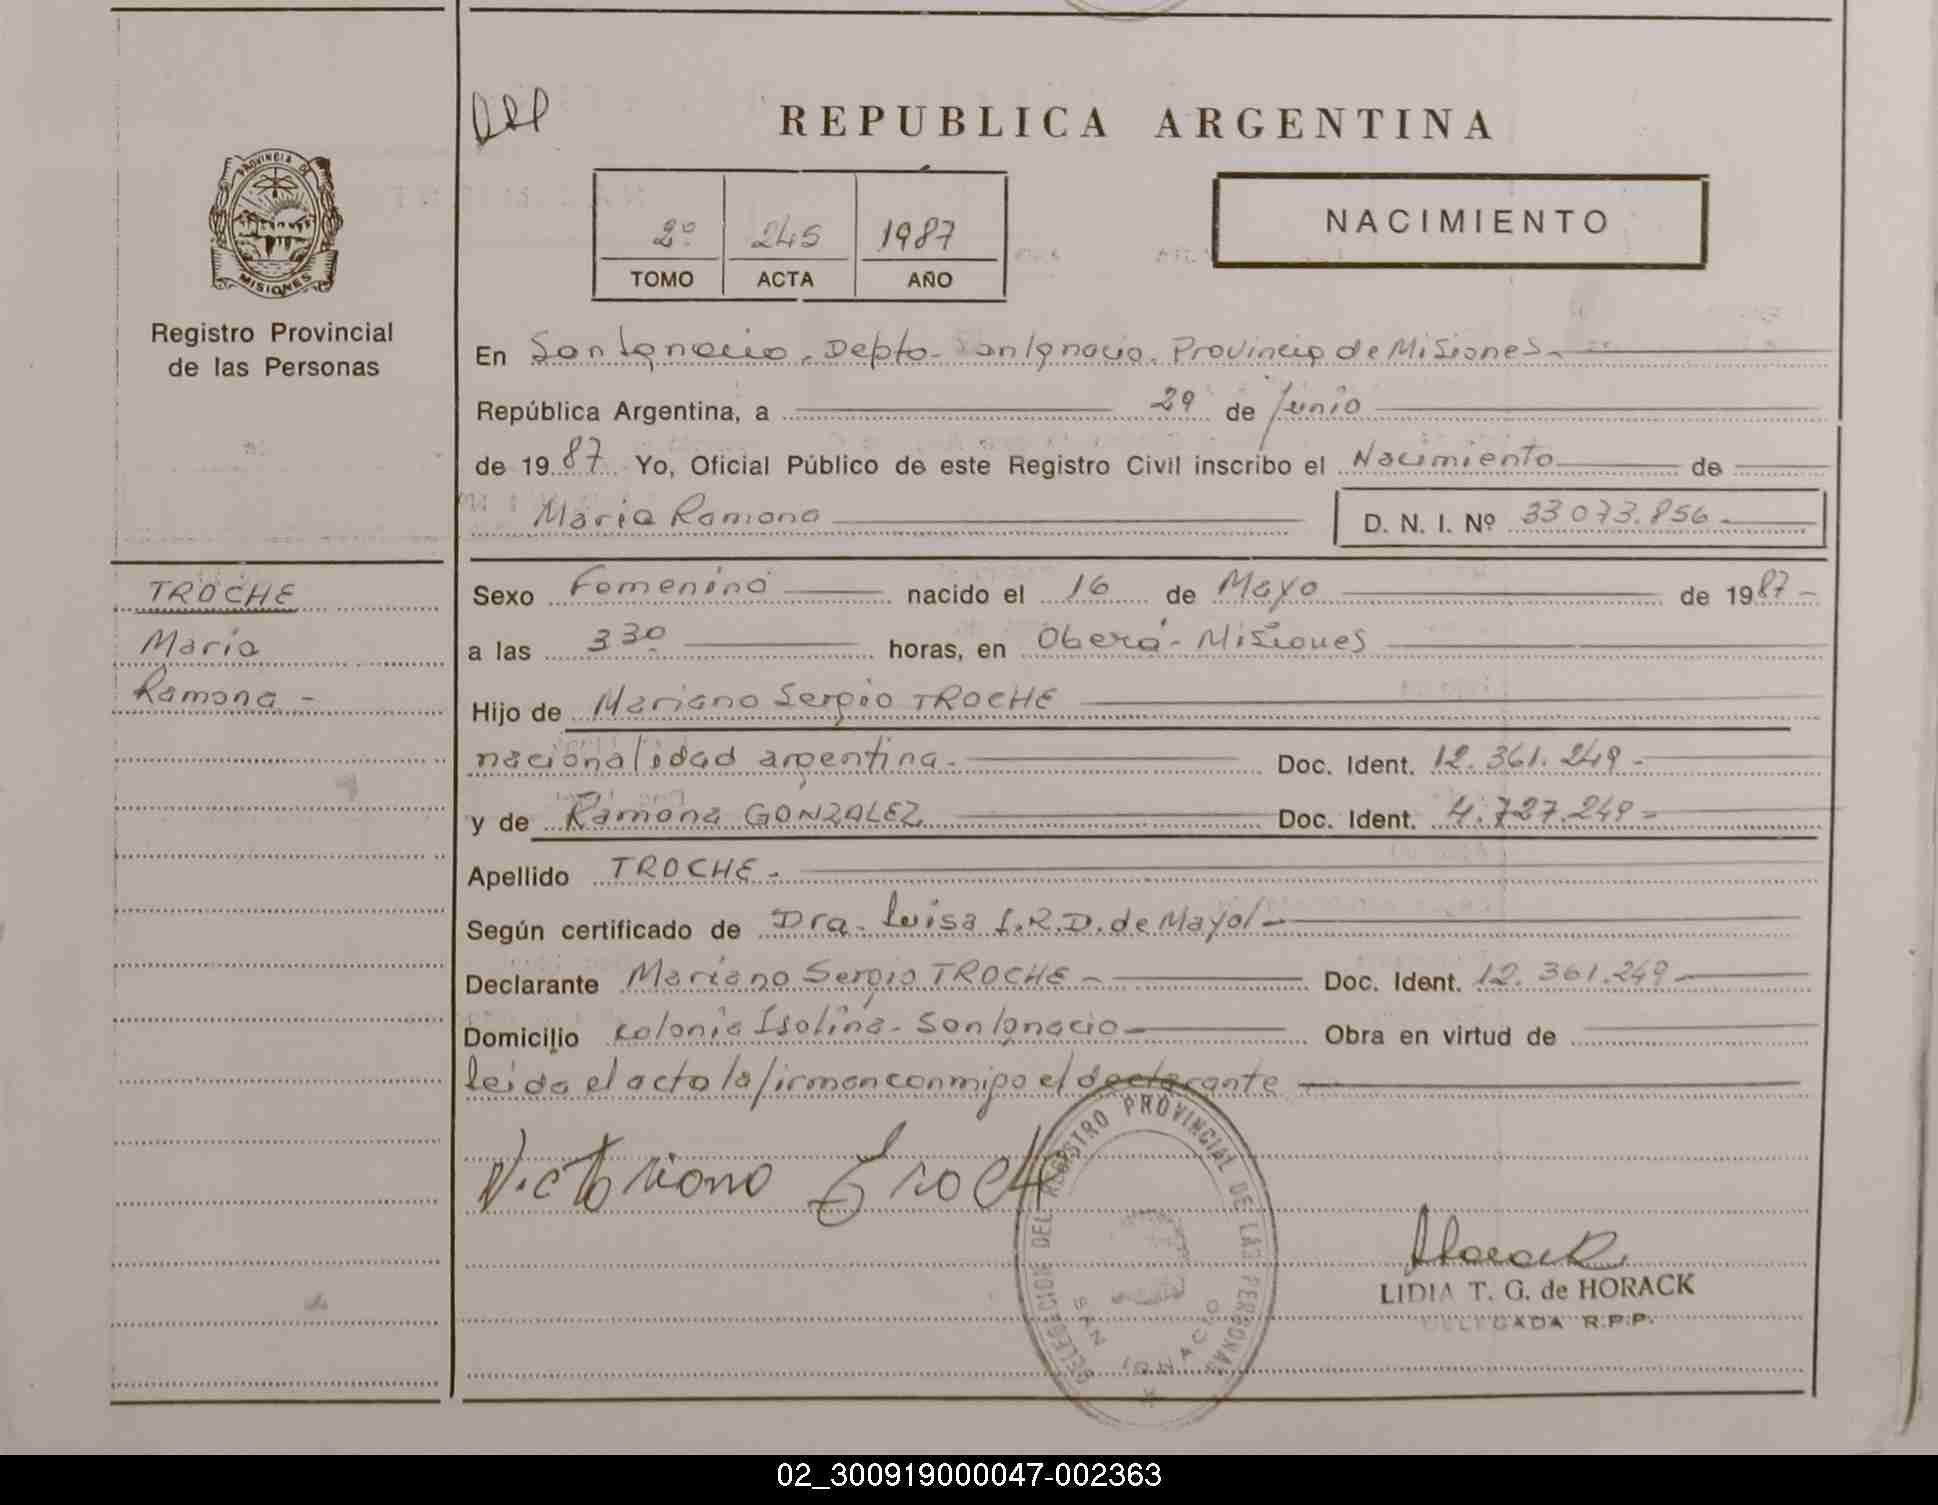 REPUBLICA ARGENTINA
PROVINCIA DE
MISIONES
Registro Provincial
de las Personas
2º 245 1987
TOMO ACTA AÑO
NACIMIENTO
En San Ignacio. Depto. San Ignacio. Provincia de Misiones.
República Argentina, a 29 de Junio
de 1987 Yo, Oficial Público de este Registro Civil inscribo el Nacimiento de
María Ramona D. N. I. Nº 33 073.856-
TROCHE
María
Ramona -
Sexo Femenino nacido el 16 de Mayo de 1987-
a las 330 horas, en Oberá - Misiones
Hijo de Mariano Sergio TROCHE
nacionalidad argentina. Doc. Ident. 12.361.249-
y de Ramona GONZALEZ Doc. Ident. 4.727.249-
Apellido TROCHE -
Según certificado de Dra. Luisa I.R.D. de Mayol-
Declarante Mariano Sergio TROCHE - Doc. Ident. 12.361.249-
Domicilio Colonia Isolina - San Ignacio Obra en virtud de
leida el acta la firman conmigo el declarante
Victoriano Troch
DELEGACION DEL REGISTRO PROVINCIAL DE LAS PERSONAS
SAN IGNACIO
Horack
LIDIA T. G. de HORACK
DELEGADA R.P.P.
02_300919000047-002363